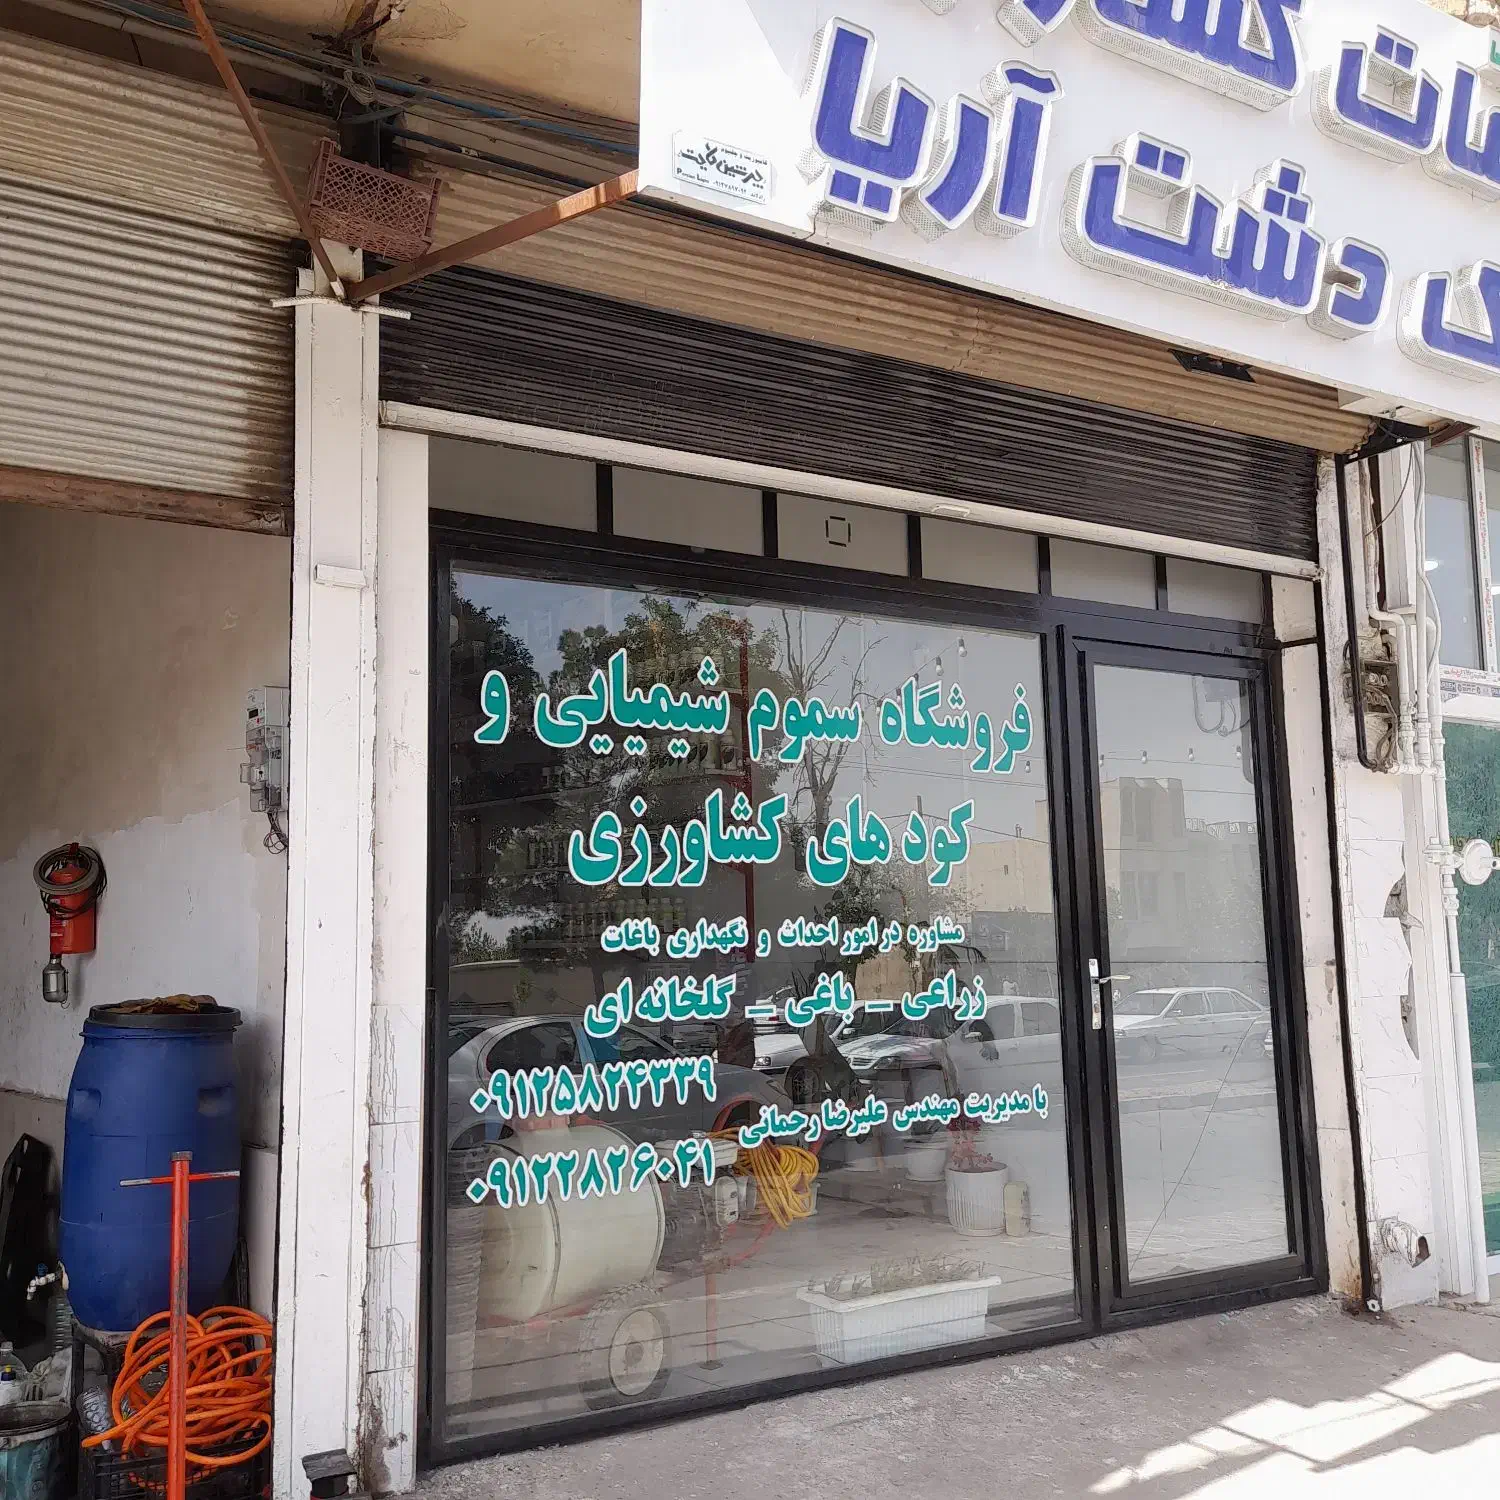 دشت آریا
پرشین لایت
Persian Light
فروشگاه سموم شیمیایی و
کود های کشاورزی
مشاوره در امور احداث و نگهداری باغات
زراعی _ باغی _ گلخانه ای
۰۹۱۲۵۸۲۴۳۳۹
با مدیریت مهندس علیرضا رحمانی
۰۹۱۲۲۸۲۶۰۴۱